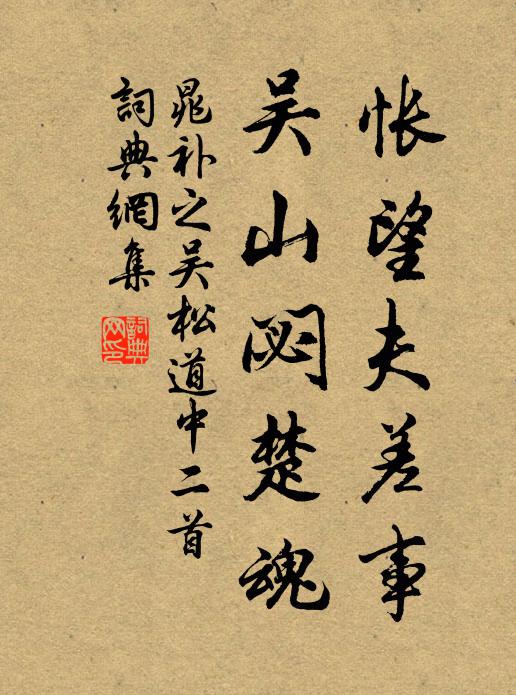 怅望夫差事
吴山閟楚魂
晁补之吴松道中二首
詞典網集
詞典网印